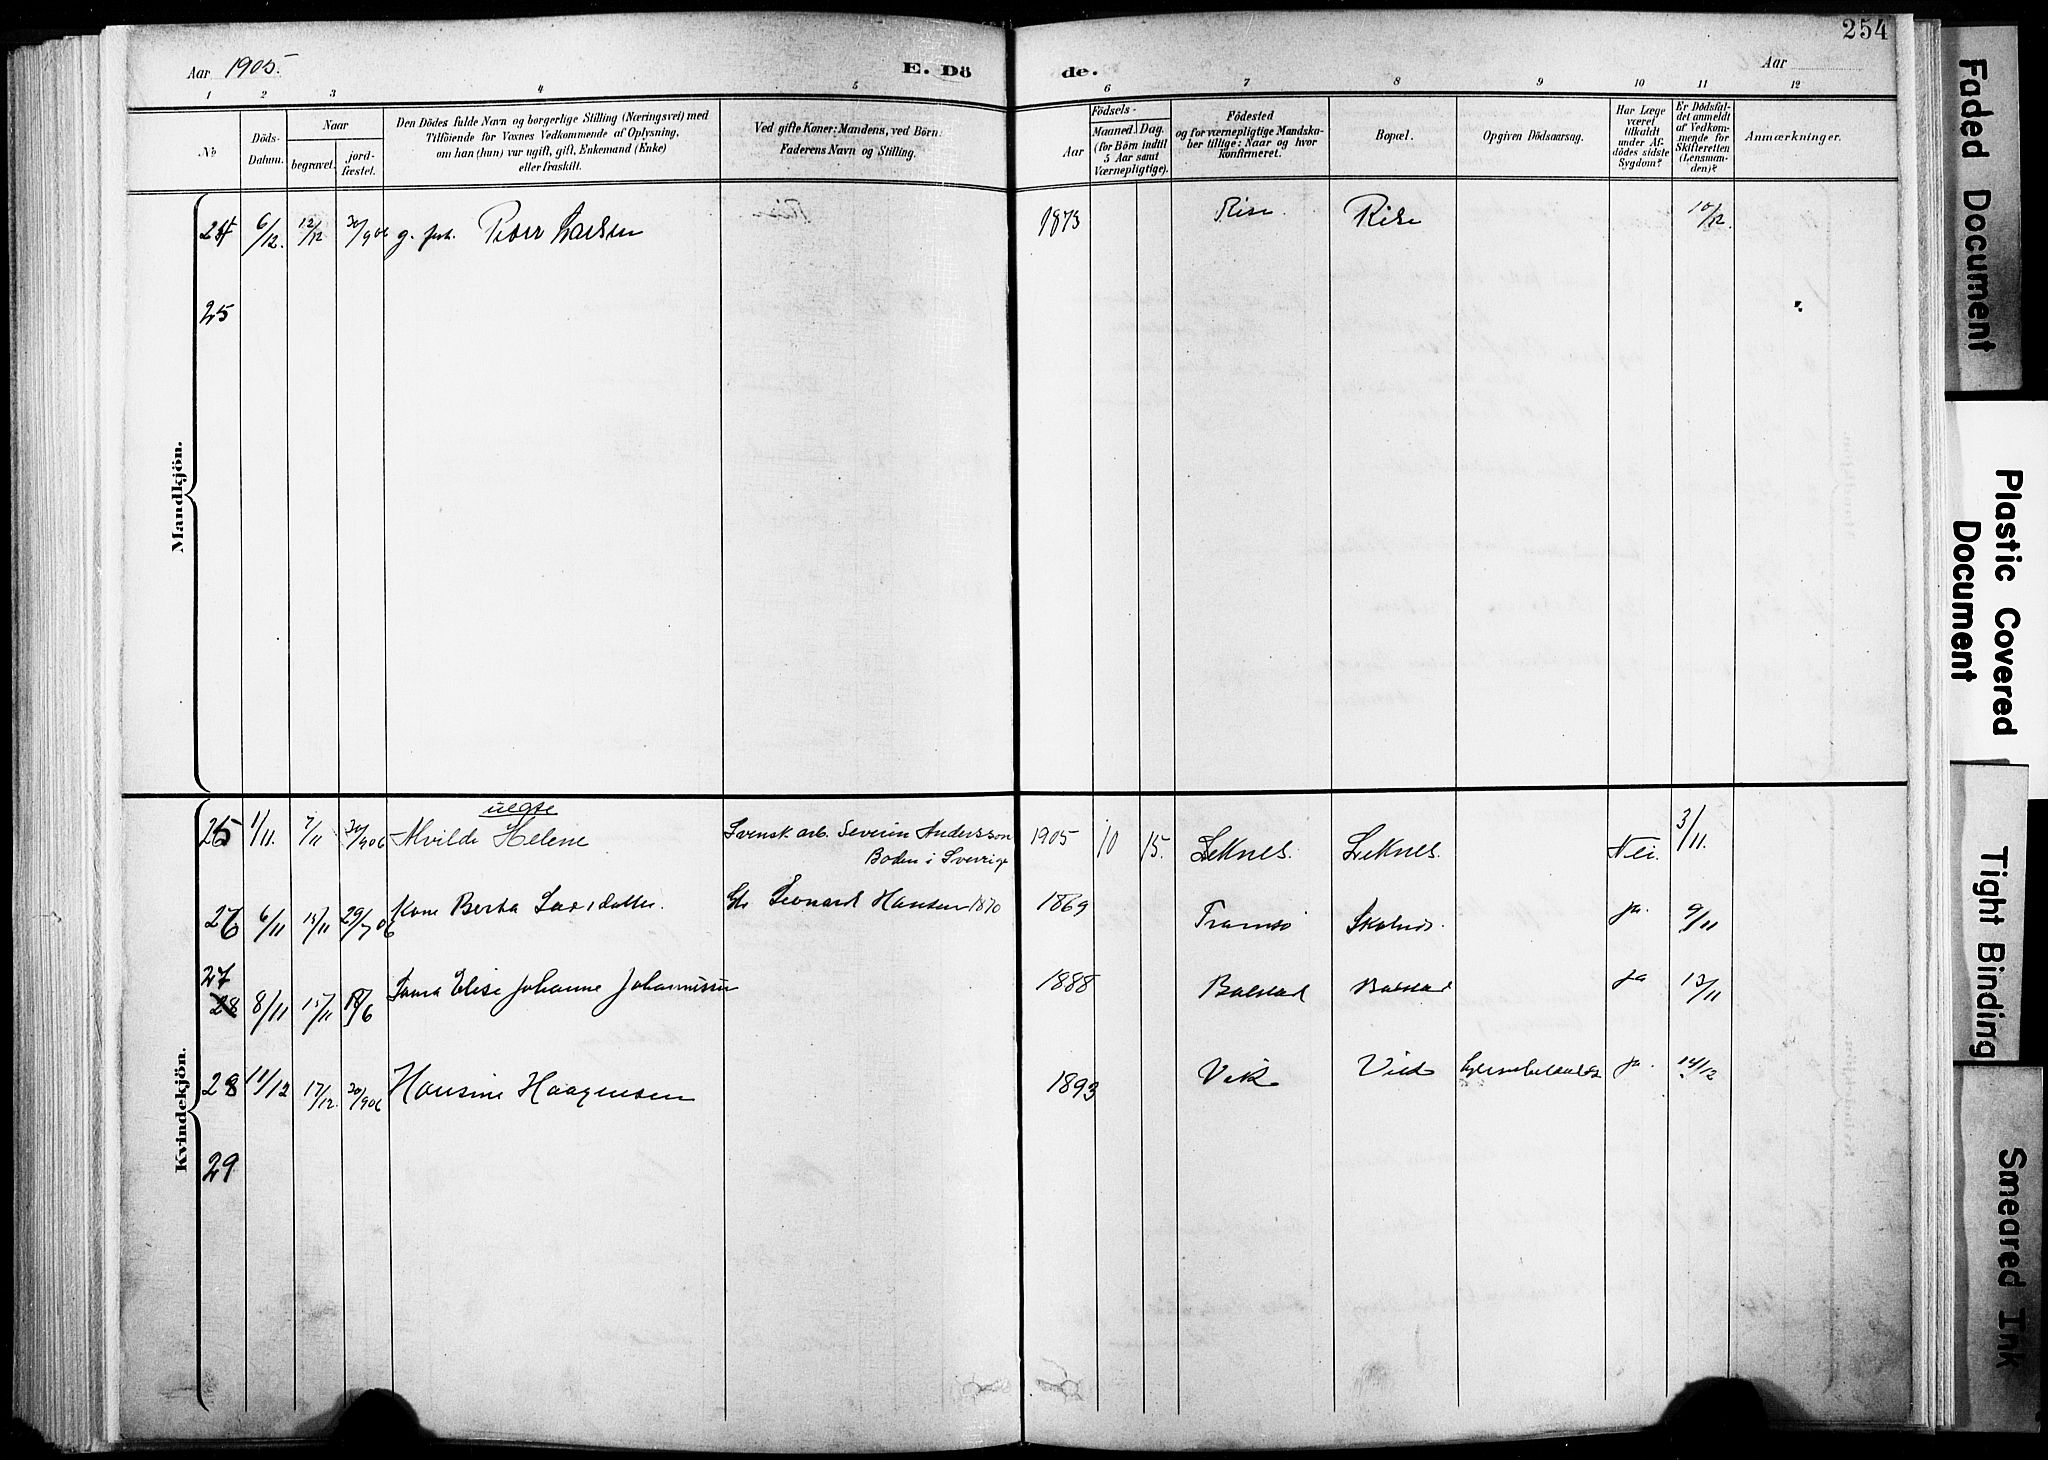 254
Aar 1905.
E. Dö
de.
Aar
1 2 3 4 5 6 7 8 9 10 11 12
№
Döds-
Datum.
Naar
begravet.
jord-
fæstet.
Den Dödes fulde Navn og borgerlige Stilling (Næringsvei) med
Tilföiende for Voxnes Vedkommende af Oplysning,
om han (hun) var ugift, gift, Enkemand (Enke)
eller fraskilt.
Ved gifte Koner: Mandens, ved Börn:
Faderens Navn og Stilling.
Födsels-
Aar
Maaned.
Dag.
(for Börn indtil
5 Aar samt
Værnepligtige).
Födested
og for værnepligtige Mandska-
ber tillige: Naar og hvor
konfirmeret.
Bopæl.
Opgiven Dödsaarsag.
Har Læge
været
tilkaldt
under Af-
dödes sidste
Sygdom?
Er Dödsfal-
det anmeldt
af Vedkom-
mende for
Skifteretten
(Lensman-
den)?
Anmærkninger.
Mandkjön.
24 6/12. 12/12 30/906 g. Peter Larsen 1873 Rise. Rise 10/12.
25
Kvindekjön.
uegte
25 1/11. 7/11 30/906 Alvilde Helene Svensk arb. Severin Andersson 1905 10 15. Leknes. Leknes. Nei. 3/11.
Boden i Sverrige
26 6/11 15/11 29/7 06 Kone Berta Larsdatter. Leonard Hansen 1870 1869 Tromsö ja. 9/11
27
28 8/11 15/11 18/6 Laura Elise Johanne Johannissen 1888 Balstad Balstad ja 13/11
28 11/12 17/12. 30/906 Hansine Haagensen 1893 Vik ja. 14/12
29
Faded Document
Plastic Covered
Document
Tight Binding
Smeared Ink